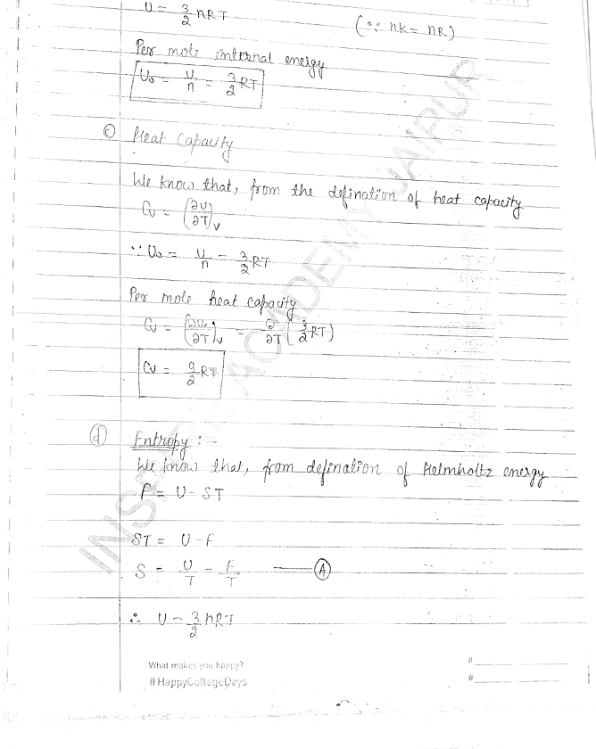 U = 3/2 nRT
(∵ nk = nR)
Per mole internal energy
U₀ = U/n = 3/2 RT
(c) Heat Capacity
We know that, from the defination of heat capacity
Cv = (∂U/∂T)v
∵ U₀ = U/n = 3/2 RT
Per mole heat capacity
Cv = (∂U₀/∂T)v = ∂/∂T (3/2 RT)
Cv = 3/2 RT
(d) Entropy :-
We know that, from defination of Helmholtz energy
F = U - ST
ST = U - F
S = U/T - F/T —— (A)
∴ U = 3/2 nRT
What makes you happy?
#HappyCollegeDays
#
#
ACADEMY JAIPUR